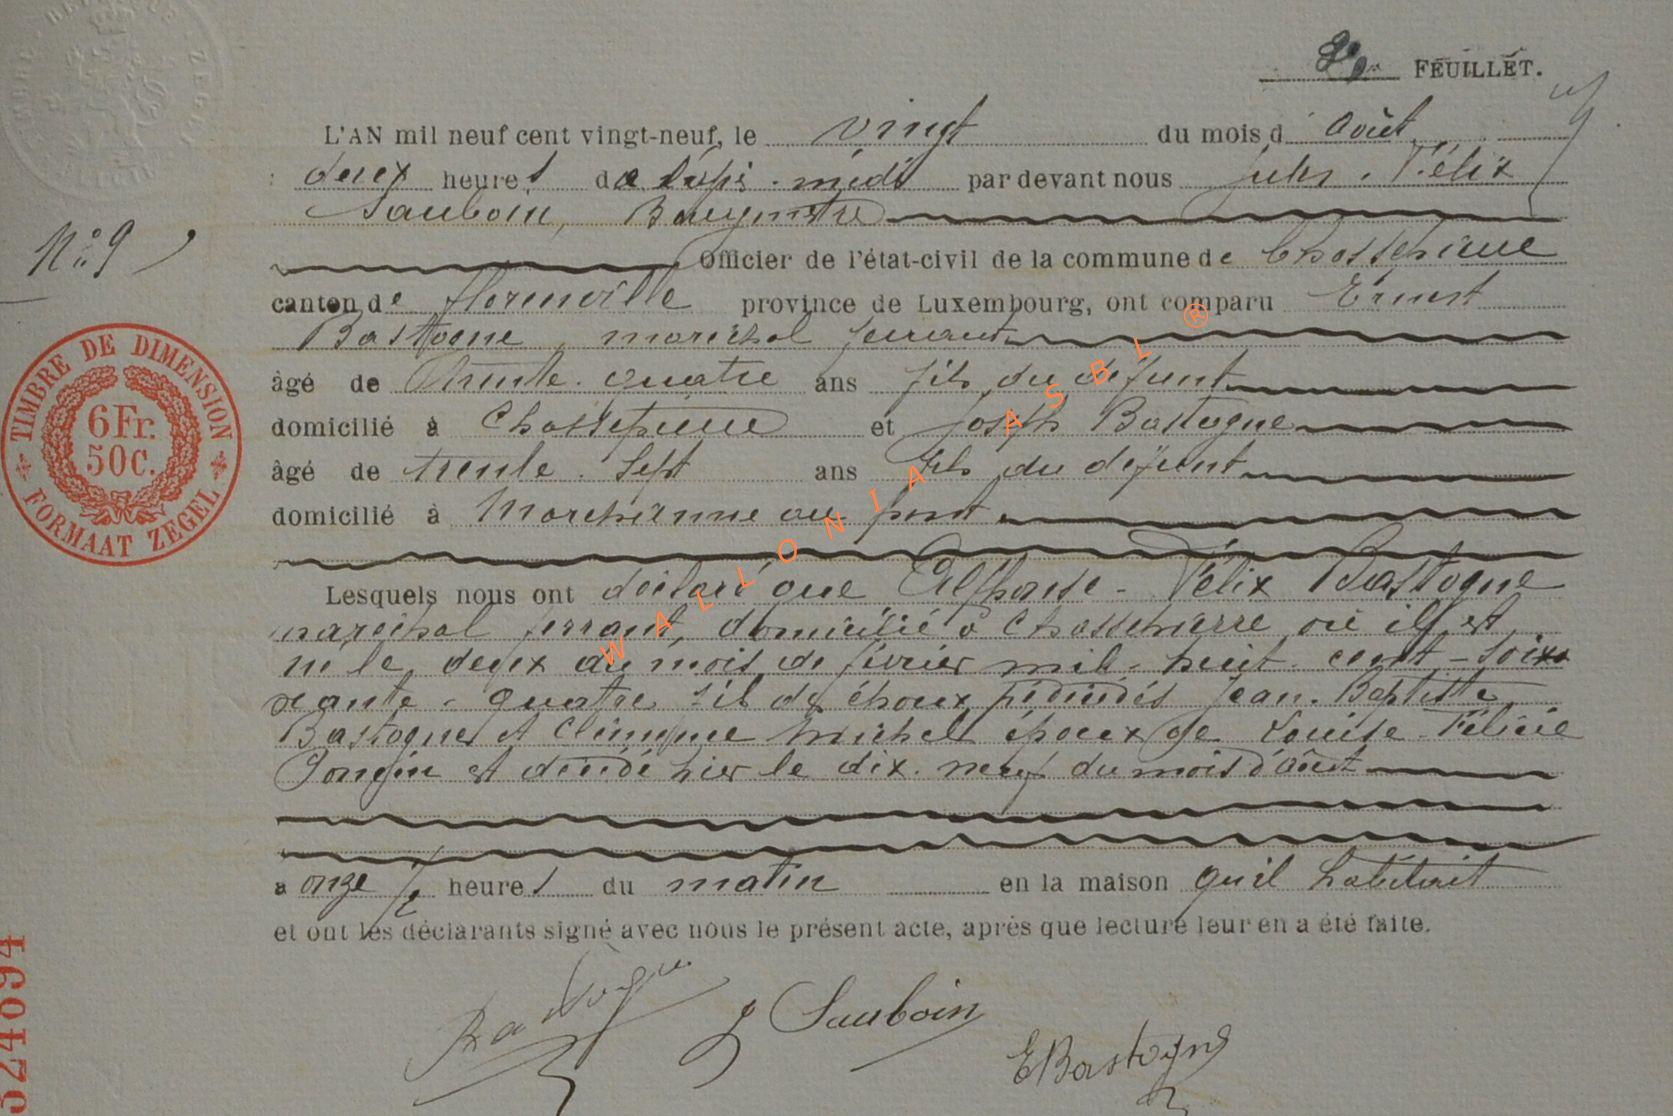 FEUILLET.
L'AN mil neuf cent vingt-neuf, le vingt du mois d août
deux heures de l'après-midi par devant nous Jules-Félix
Sauboin, Bourgmestre
N° 9
Officier de l'état-civil de la commune de Chassepierre
canton de Florenville province de Luxembourg, ont comparu Ernest
Bastogne, maréchal ferrant
âgé de trente-quatre ans fils du défunt
domicilié à Chassepierre et Joseph Bastogne
âgé de trente-sept ans fils du défunt
domicilié à Marchienne au pont
Lesquels nous ont déclaré que Alphonse-Félix Bastogne
maréchal ferrant, domicilié à Chassepierre où il est
né le deux du mois de février mil-huit-cent-soix
xante-quatre fils des époux décédés Jean-Baptiste
Bastogne et Michel époux de Louise-Félicie
Gongin est décédé hier le dix-neuf du mois d'août
a onze 1/2 heures du matin en la maison qu'il habitait
et ont les déclarants signé avec nous le présent acte, après que lecture leur en a été faite.
Bastogne J Sauboin EBastogne
TIMBRE DE DIMENSION
6 Fr.
50 C.
FORMAAT ZEGEL
324694
WALLONIA ASBL ®